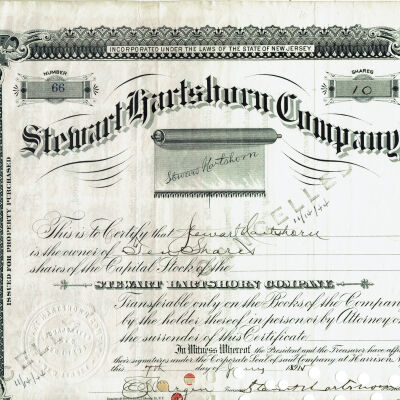 INCORPORATED UNDER THE LAWS OF THE STATE OF NEW JERSEY
NUMBER
66
SHARES
10
Stewart Hartshorn Company
Stewart Hartshorn
ISSUED FOR PROPERTY PURCHASED
This is to Certify that Stewart Hartshorn
is the owner of Ten Shares
shares of the Capital Stock of the
CANCELLED
11/14/44
STEWART HARTSHORN COMPANY.
Transferable only on the Books of the Compan
by the holder thereof in person or by Attorney o
the surrender of this Certificate.
In Witness Whereof the President and the Treasurer have affi
their signatures under the Corporate Seal of said Company at Harrison N
this 7th day of 189
Treasurer